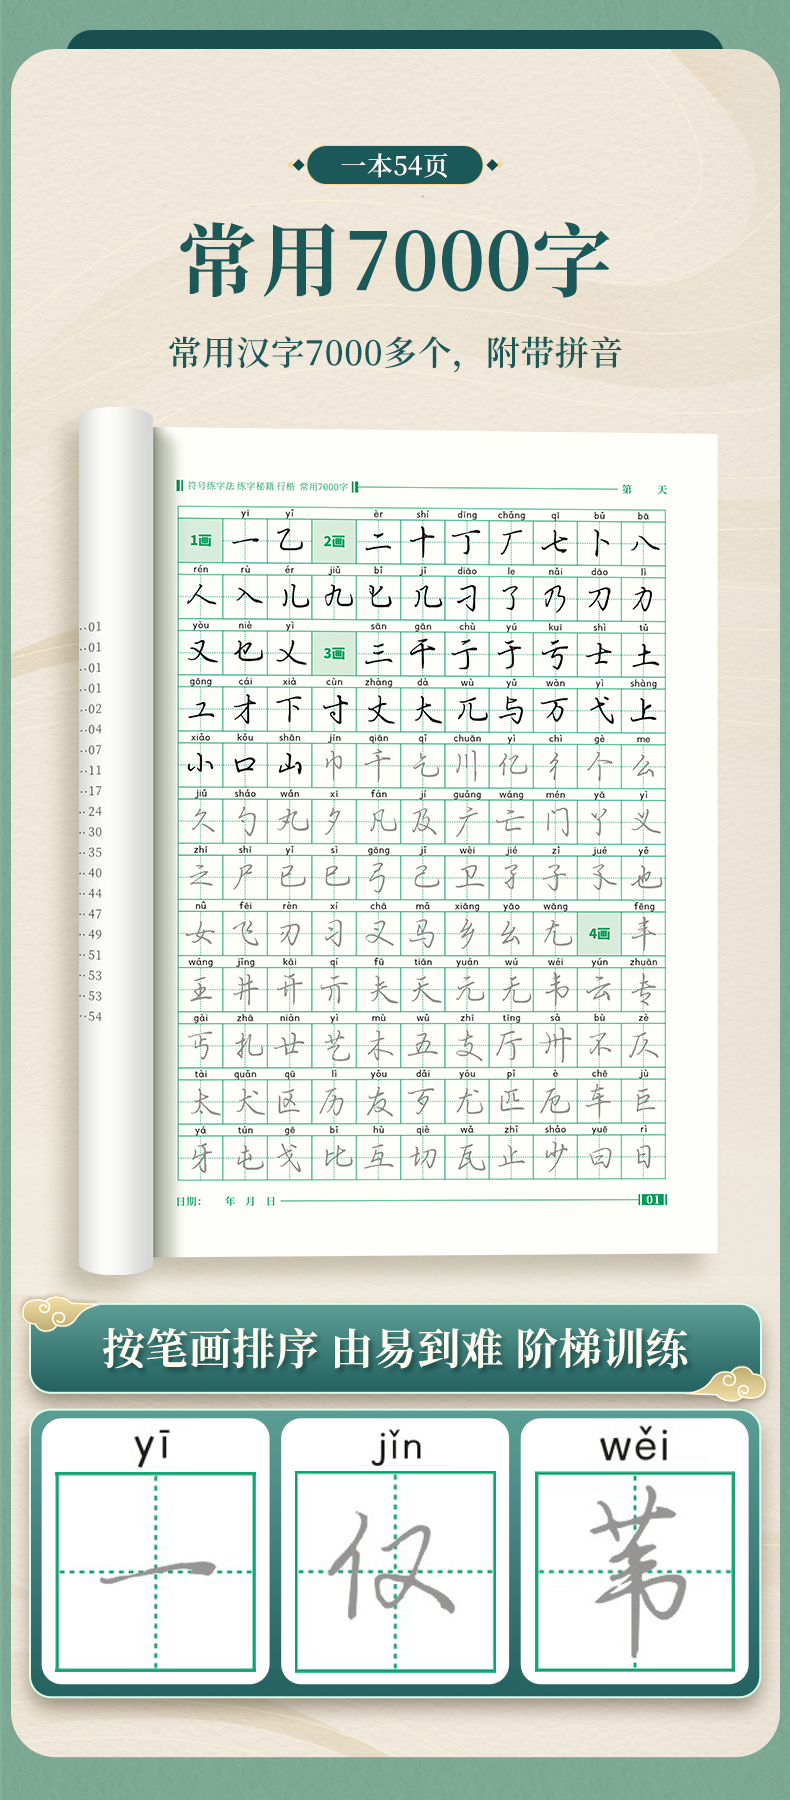 一本54页
常用7000字
常用汉字7000多个，附带拼音
符号练字法 练字秘籍 行楷 常用7000字
第 天
yī yǐ èr shí dīng chǎng qī bǔ bā
1画 一 乙 2画 二 十 丁 厂 七 卜 八
rén rù ér jiǔ bǐ jǐ diāo le nǎi dāo lì
人 入 儿 九 匕 几 刁 了 乃 刀 力
yòu niè yì sān gān chù yú kuī shì tǔ
又 乜 乂 3画 三 干 亍 于 亏 士 土
gōng cái xià cùn zhàng dà wù yǔ wàn yì shàng
工 才 下 寸 丈 大 兀 与 万 弋 上
xiǎo kǒu shān jīn qiān qǐ chuān yì chì gè me
小 口 山 巾 千 乞 川 亿 彳 个 么
jiǔ sháo wán xī fán jí guǎng wáng mén yā yì
久 勺 丸 夕 凡 及 广 亡 门 丫 义
zhī shī yǐ sì gōng jǐ wèi jié zǐ jué yě
之 尸 已 巳 弓 己 卫 孑 子 孓 也
nǚ fēi rèn xí chā mǎ xiāng yāo wāng fēng
女 飞 刃 习 叉 马 乡 幺 尢 4画 丰
wáng jǐng kāi qí fū tiān yuán wú wéi yún zhuān
王 井 开 亓 夫 天 元 无 韦 云 专
gài zhā niàn yì mù wǔ zhī tīng sà bù zè
丐 扎 廿 艺 木 五 支 厅 卅 不 仄
tài quǎn qū lì yǒu dǎi yóu pǐ è chē jù
太 犬 区 历 友 歹 尤 匹 厄 车 巨
yá tún gē bǐ hù qiè wǎ zhǐ shǎo yuē rì
牙 屯 戈 比 互 切 瓦 止 少 曰 日
日期： 年 月 日
01
··01
··01
··01
··01
··02
··04
··07
··11
··17
··24
··30
··35
··40
··44
··47
··49
··51
··53
··53
··54
按笔画排序 由易到难 阶梯训练
yī jǐn wěi
一 仅 苇